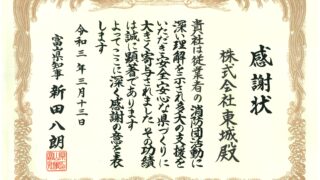 感謝状
株式会社東城殿
貴社は従業者の消防団活動に
深い理解を示され多大の支援を
いただき安全・安心な県づくりに
大きく寄与されました その功績
は誠に顕著であります
よってここに深く感謝の意を表
します
令和三年三月十三日
富山県知事 新田八朗